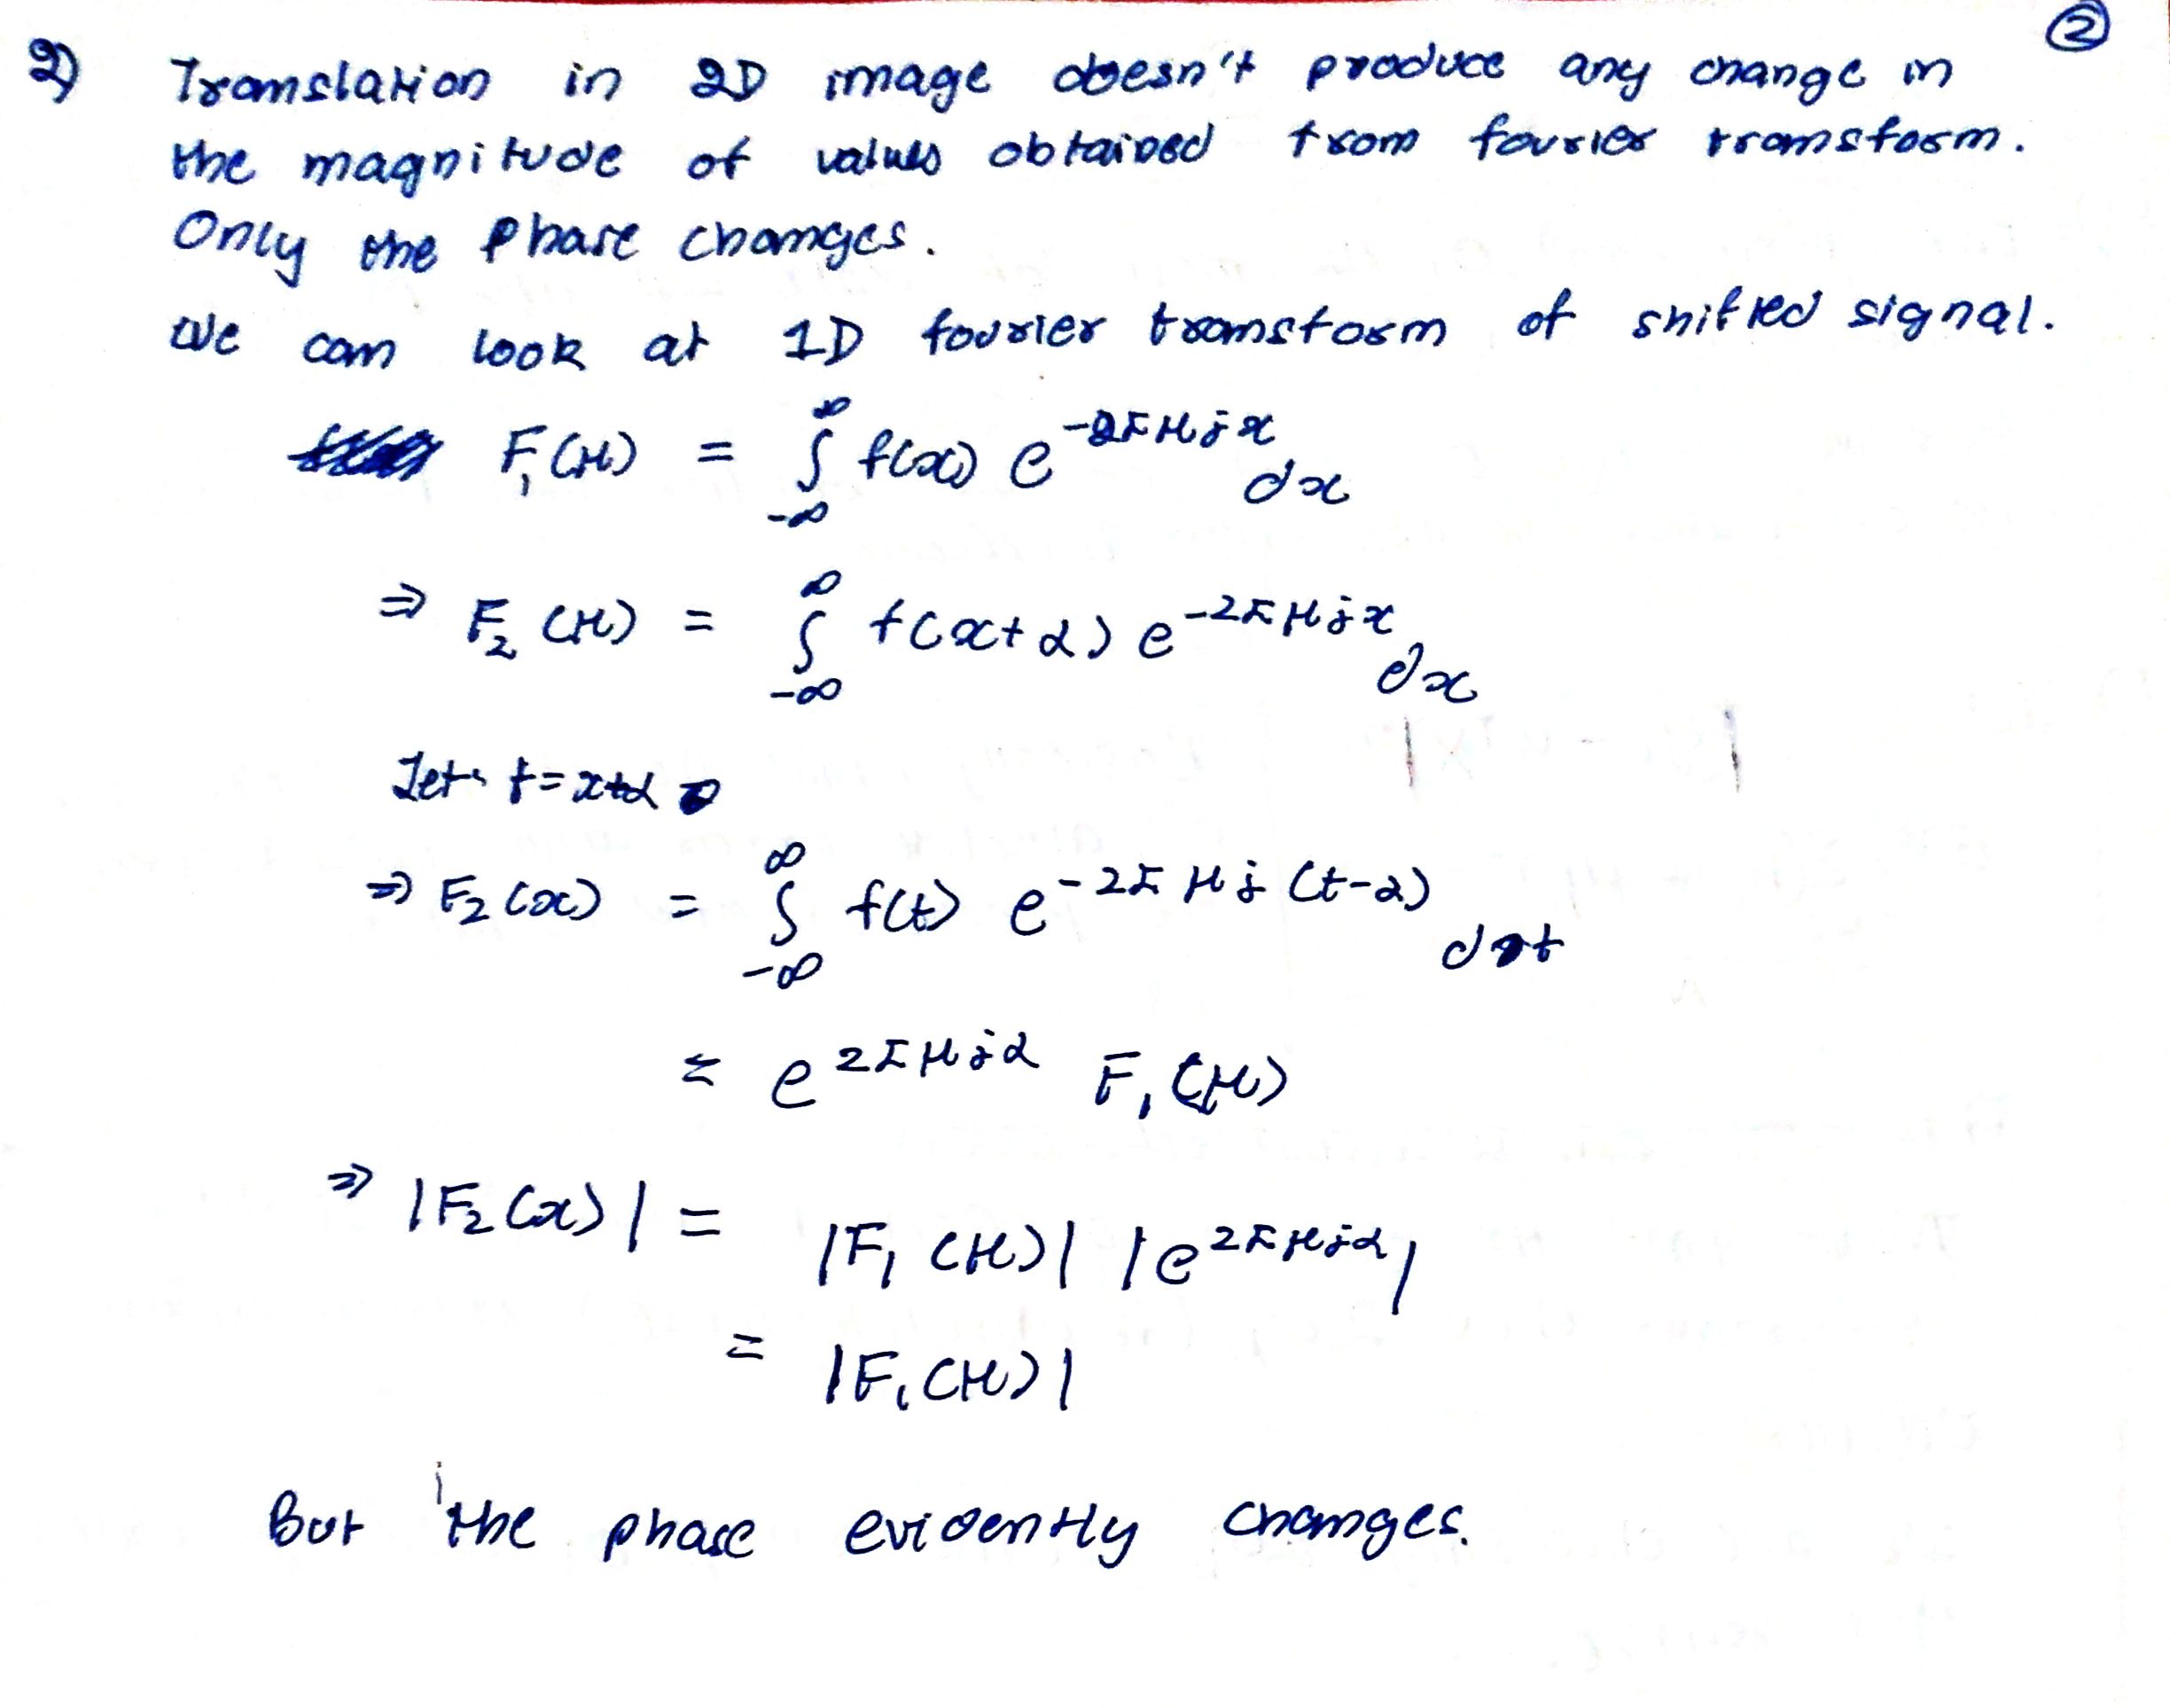 ②
2) Translation in 2D image doesn't produce any change in
the magnitude of values obtained from fourier transform.
Only the phase changes.
We can look at 1D fourier transform of shifted signal.
F₁(μ) = ∫_{-∞}^{∞} f(x) e^{-2πμjx} dx
⇒ F₂(μ) = ∫_{-∞}^{∞} f(x+α) e^{-2πμjx} dx
Let t = x+α
⇒ F₂(x) = ∫_{-∞}^{∞} f(t) e^{-2πμj(t-α)} dt
= e^{2πμjα} F₁(μ)
⇒ |F₂(x)| = |F₁(μ)| |e^{2πμjα}|
= |F₁(μ)|
But the phase evidently changes.